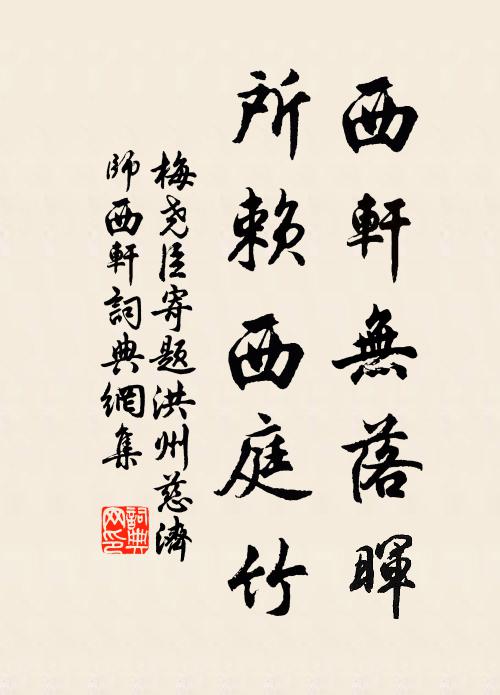 西軒無落暉
所賴西庭竹
梅堯臣寄題洪州慈濟
師西軒詞典網集
詞典
网印